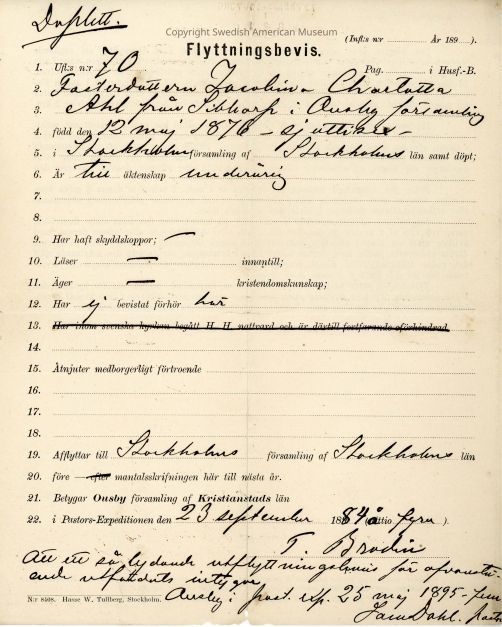 Duplett.
Copyright Swedish American Museum
Flyttningsbevis.
(Infl:s n:r År 189 ).
1. Utfl:s n:r 70 Pag. i Husf.-B.
2. Fosterdottern Jacobina Charlotta
3. Ahl från Sibbarp i Ousby församling
4. född den 12 maj 1876 – sjuttisex –
5. i Stockholms församling af Stockholms län samt döpt;
6. Är till äktenskap underårig
7.
8.
9. Har haft skyddskoppor; —
10. Läser — innantill;
11. Äger — kristendomskunskap;
12. Har ej bevistat förhör här
13. Har inom svenska kyrkan begått H. H. nattvard och är därtill fortfarande oförhindrad.
14.
15. Åtnjuter medborgerligt förtroende
16.
17.
18.
19. Afflyttar till Stockholms församling af Stockholms län
20. före – efter mantalsskrifningen här till nästa år.
21. Betygar Ousby församling af Kristianstads län
22. i Pastors-Expeditionen den 23 september 1884 (åttio fyra ).
T. Brodin
Att ett så lydande utflyttningsbevis för ofvanstå-
ende utfärdats intygar
Ousby: past. exp. 25 maj 1895
N:r 8508. Hasse W. Tullberg, Stockholm.